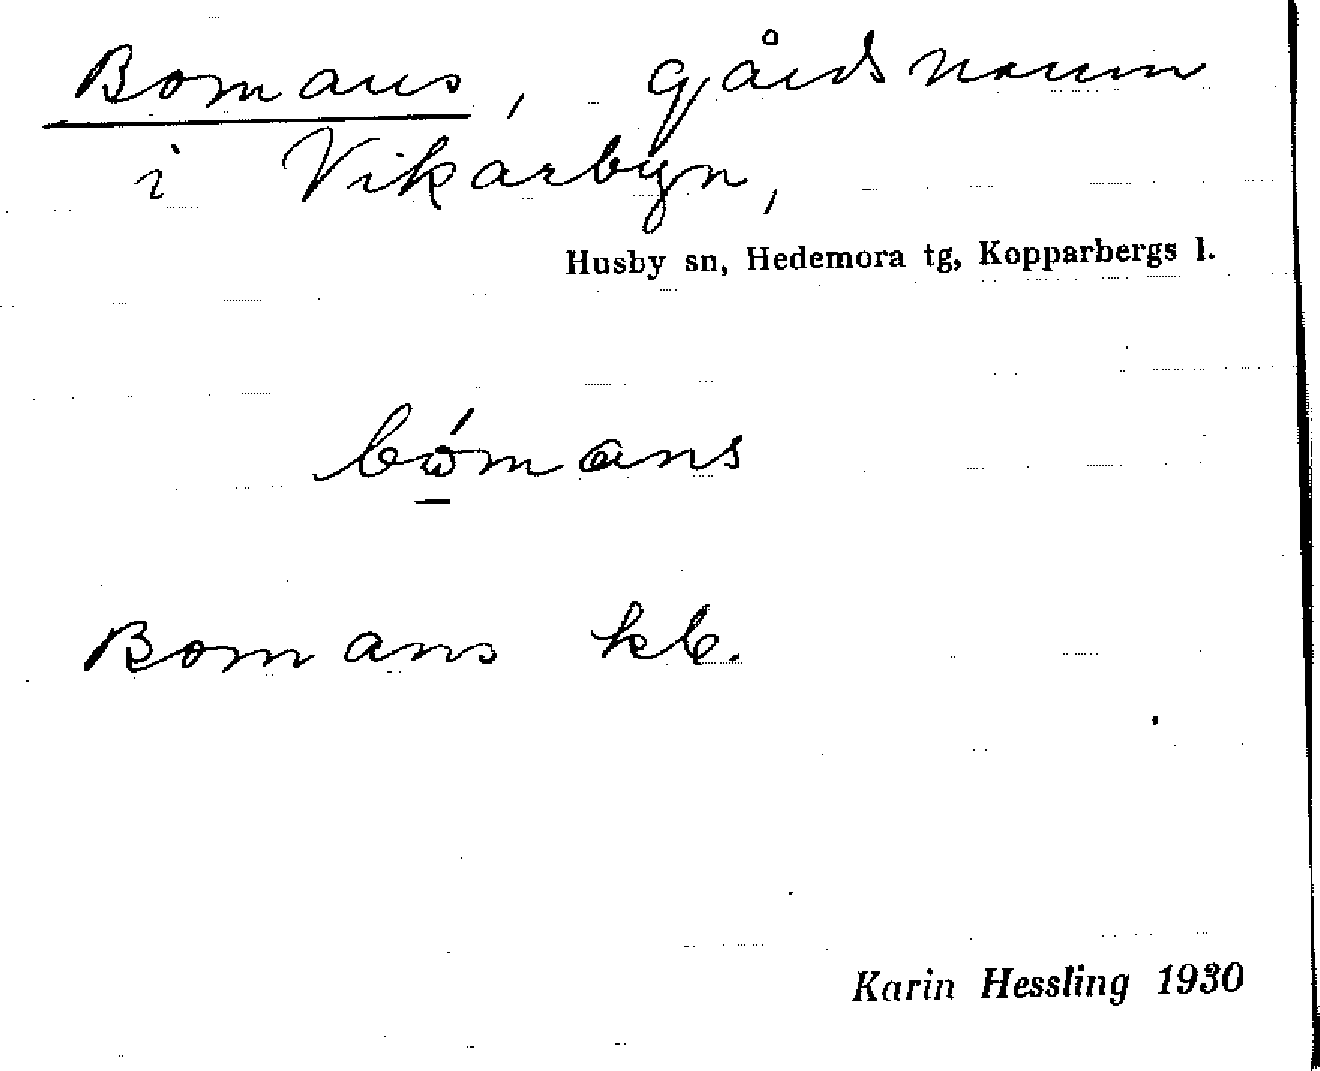 Bomans, gårdsnamn
i Vikarbyn,
Husby sn, Hedemora tg, Kopparbergs l.
bώ̲mans
Bomans kb.
Karin Hessling 1930